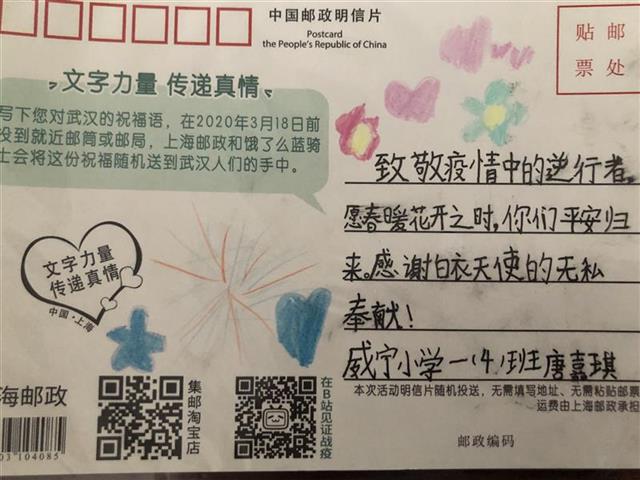 中国邮政明信片
Postcard
the People's Republic of China
贴 邮
票 处
文字力量 传递真情
写下您对武汉的祝福语，在2020年3月18日前
投到就近邮筒或邮局，上海邮政和饿了么蓝骑
士会将这份祝福随机送到武汉人们的手中。
致敬疫情中的逆行者。
愿春暖花开之时，你们平安归
来。感谢白衣天使的无私
奉献！
威宁小学一（4）班唐嘉琪
文字力量
传递真情
中国·上海
海邮政
03104085
集邮淘宝店
在B站见证战疫
本次活动明信片随机投送，无需填写地址、无需粘贴邮票
运费由上海邮政承担
邮政编码